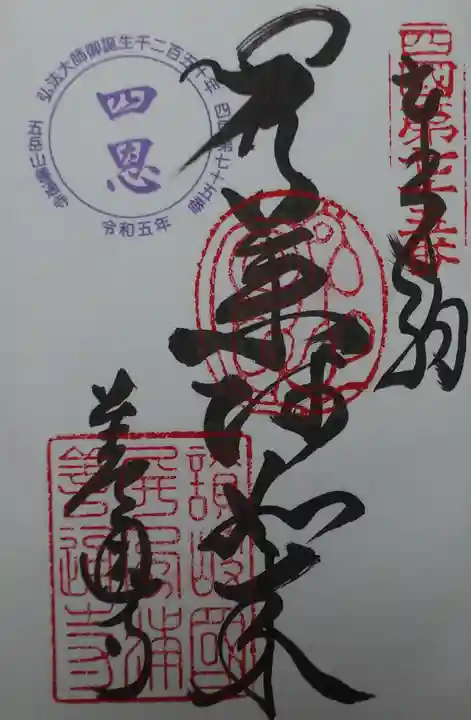 奉納
四國第七十五番
薬師如来
善通寺
讃岐國
屏風浦
善通寺
弘法大師御誕生千二百五十年 四国第七十五番
四恩
五岳山善通寺
令和五年